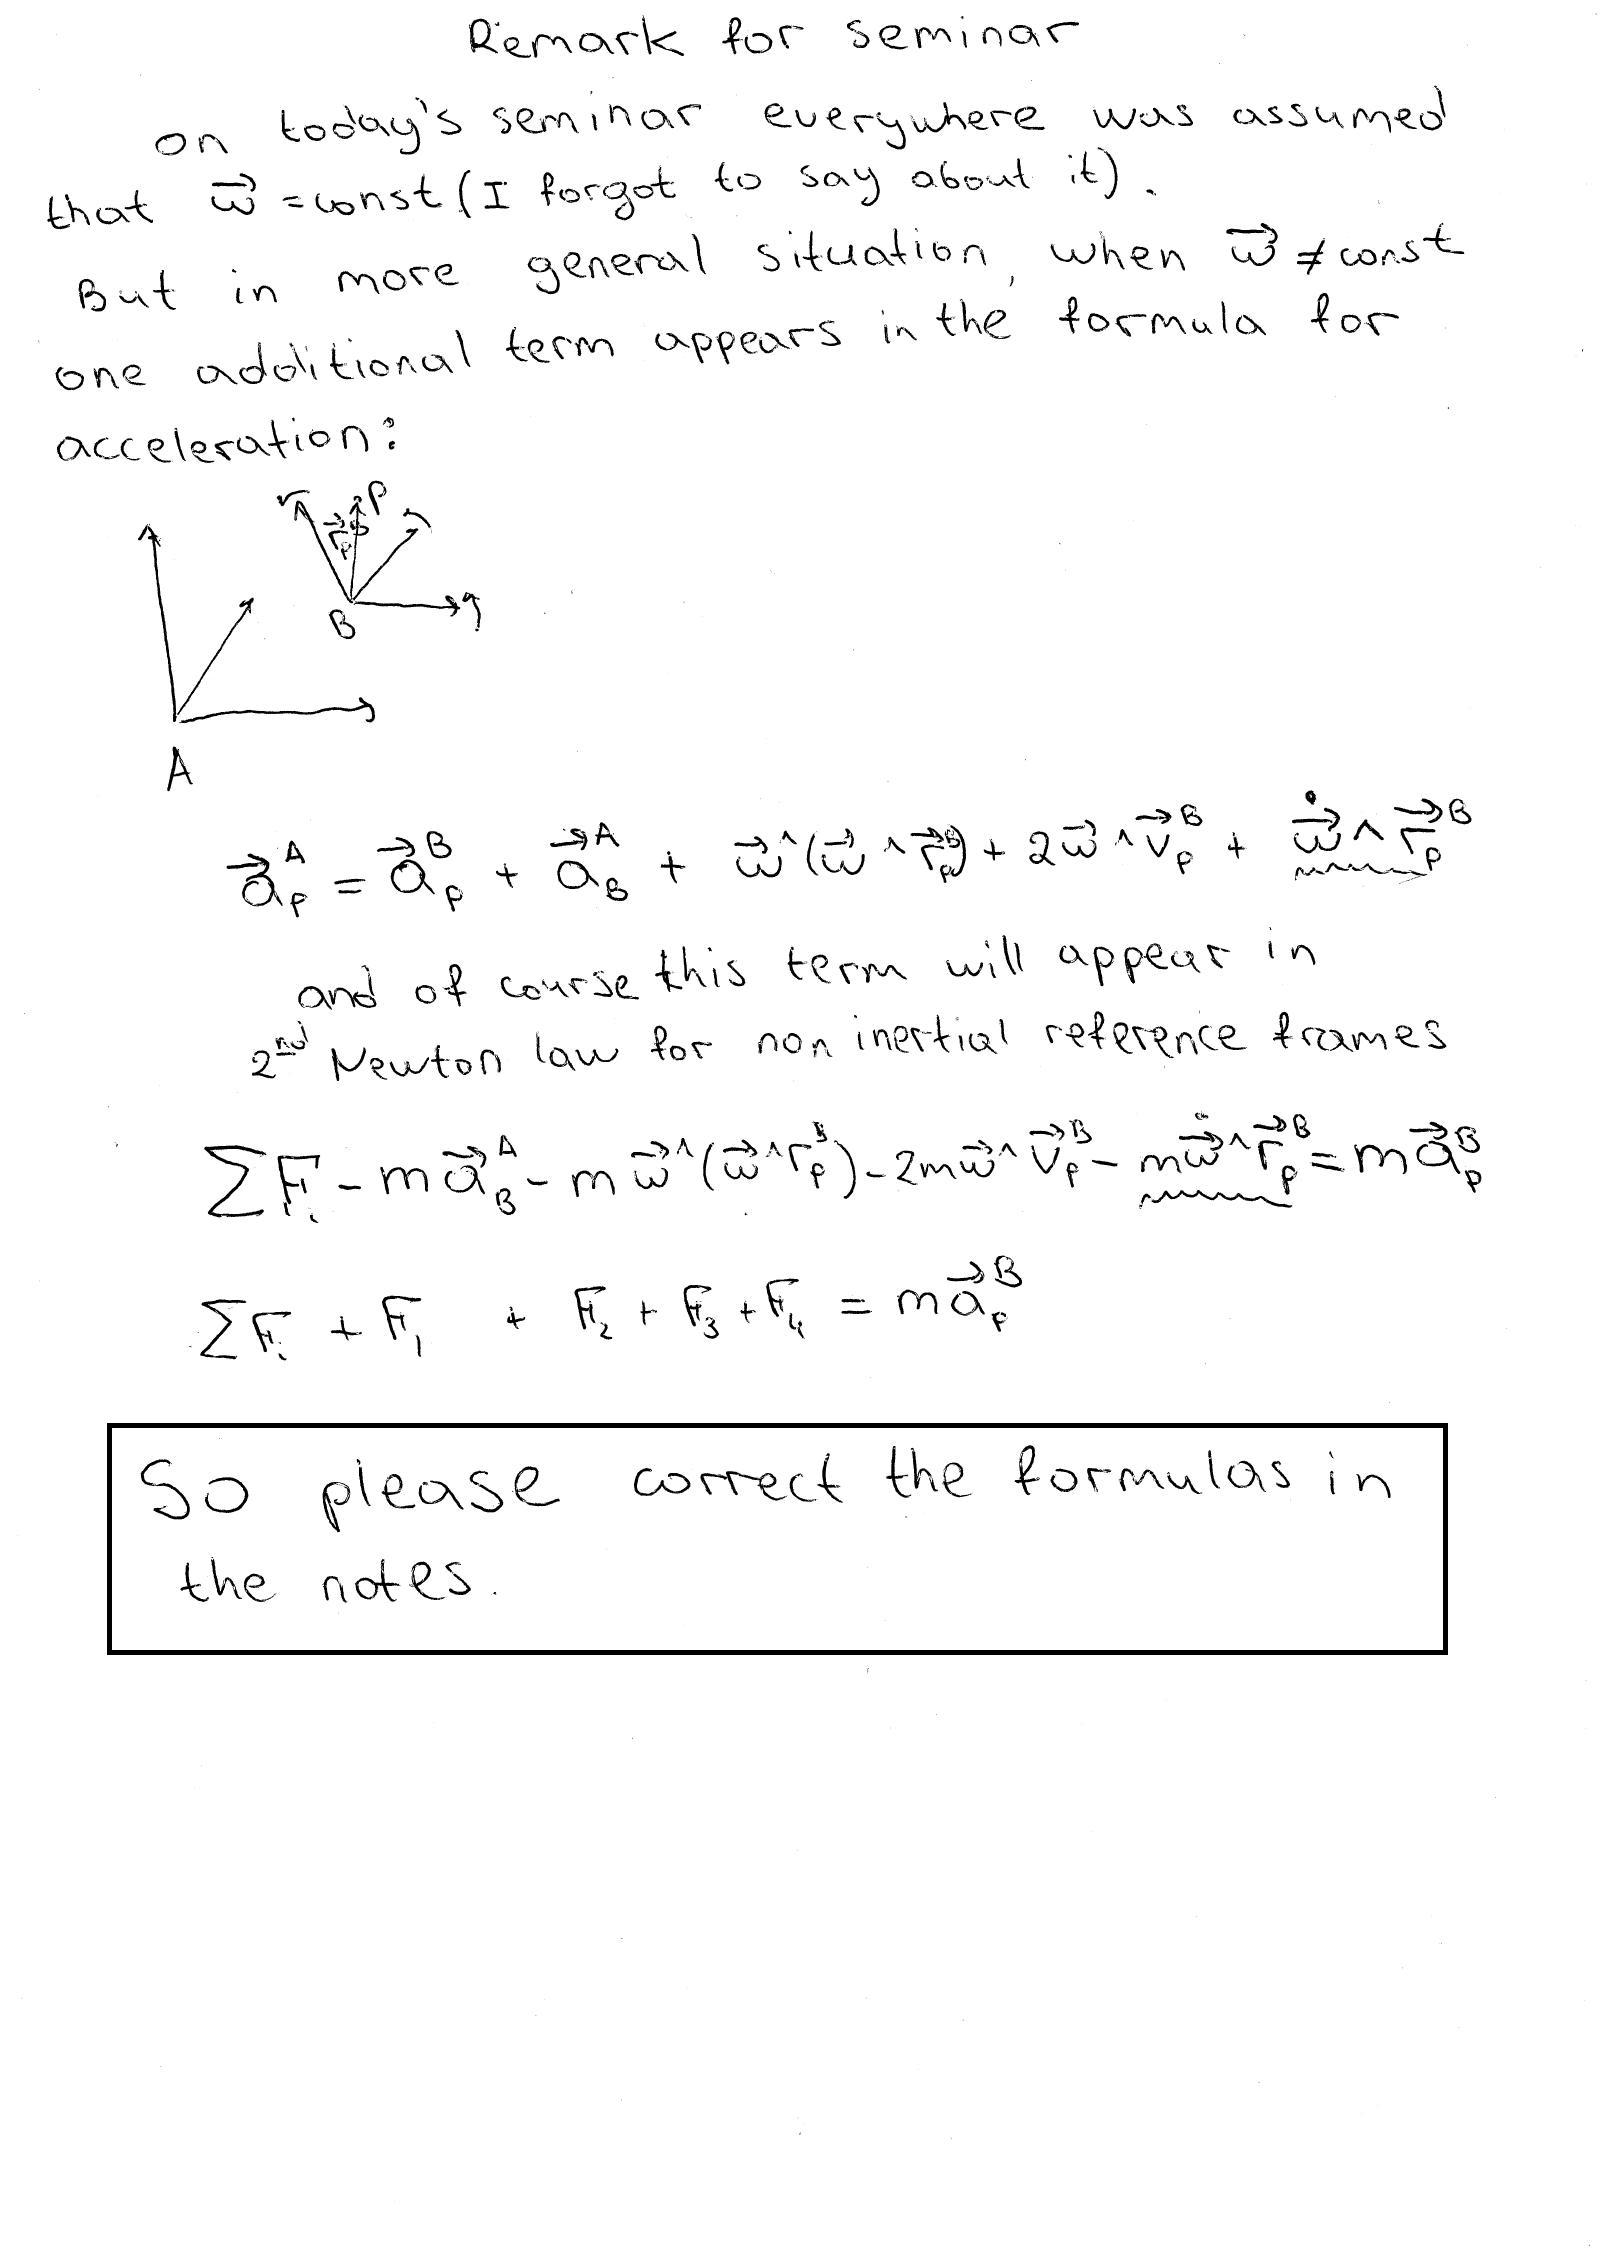 Remark for seminar
on today's seminar everywhere was assumed
that $\vec{\omega}$ = const (I forgot to say about it).
But in more general situation, when $\vec{\omega}$ ≠ const
one additional term appears in the formula for
acceleration:
P
$\vec{r}_p^B$
B
A
$\vec{a}_p^A = \vec{a}_p^B + \vec{a}_B^A + \vec{\omega} \wedge (\vec{\omega} \wedge \vec{r}_p^B) + 2\vec{\omega} \wedge \vec{v}_p^B + \dot{\vec{\omega}} \wedge \vec{r}_p^B$
and of course this term will appear in
2nd Newton law for non inertial reference frames
$\sum F_i - m\vec{a}_B^A - m\vec{\omega} \wedge (\vec{\omega} \wedge r_p^B) - 2m\vec{\omega} \wedge \vec{v}_p^B - m\dot{\vec{\omega}} \wedge \vec{r}_p^B = m\vec{a}_p^B$
$\sum F_i + F_1 + F_2 + F_3 + F_4 = m\vec{a}_p^B$
So please correct the formulas in
the notes.